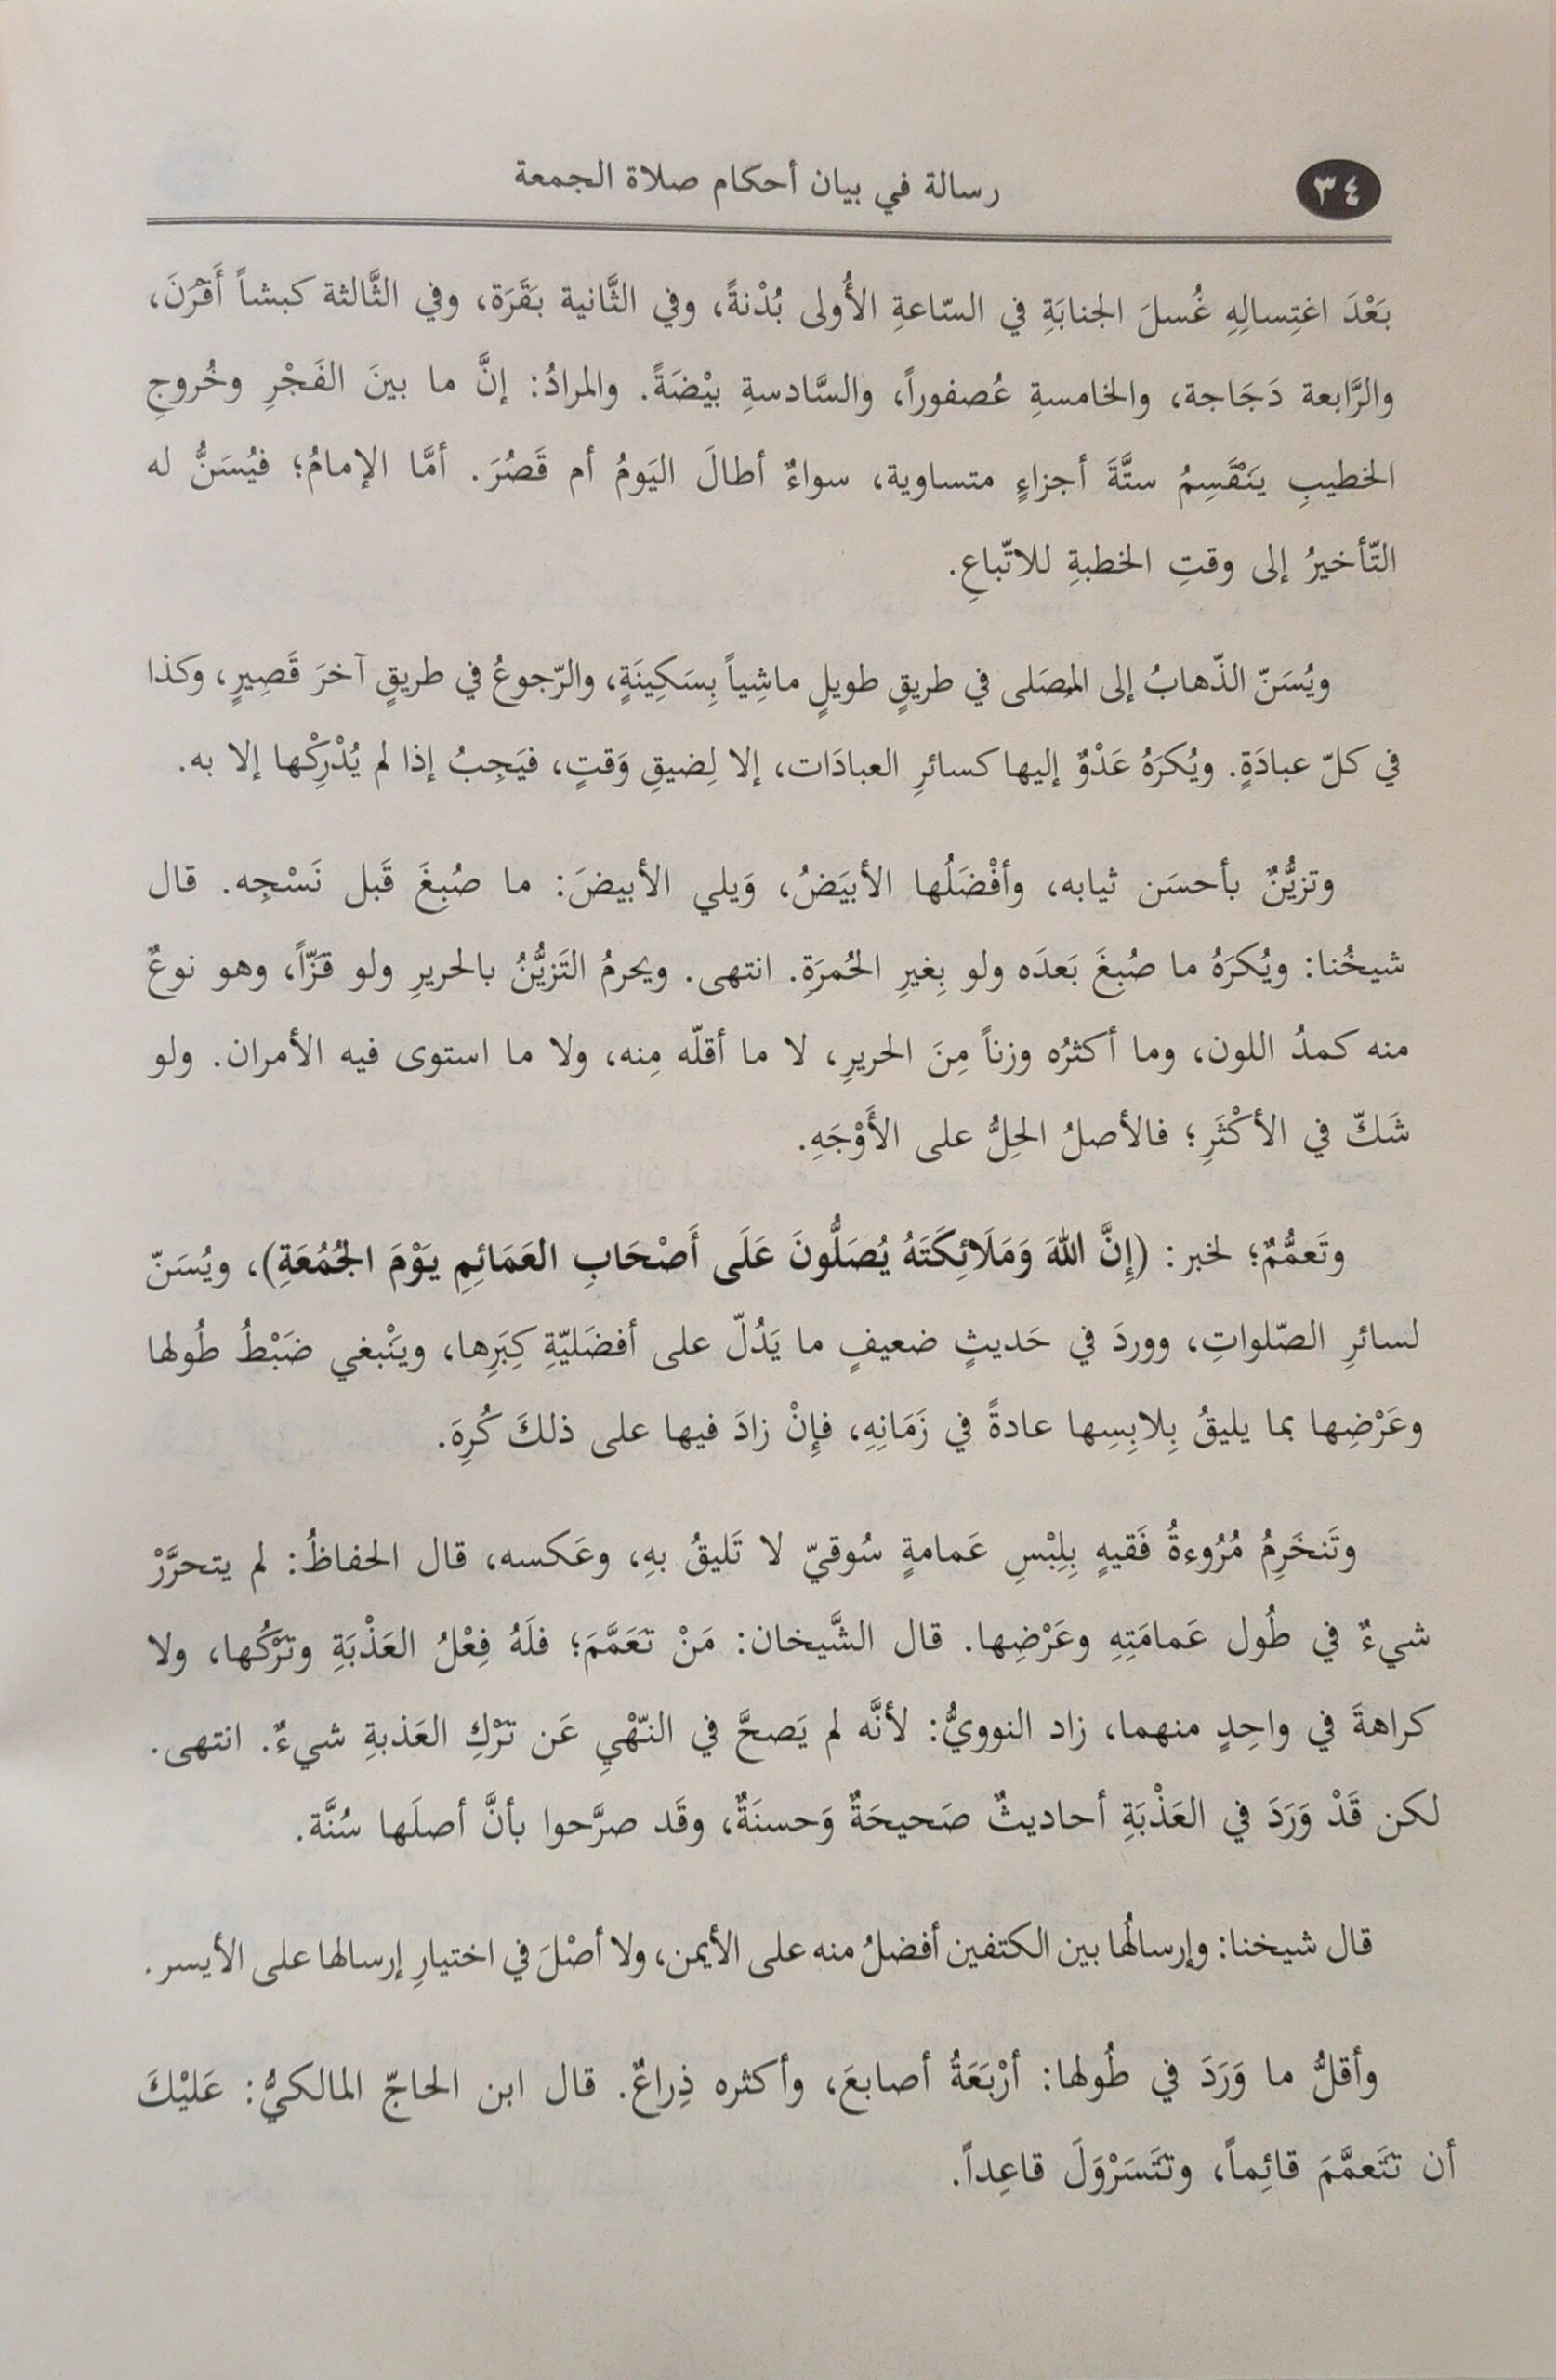 ٣٤
رسالة في بيان أحكام صلاة الجمعة
بَعْدَ اغتِسالِهِ غُسلَ الجنابَةِ في السّاعةِ الأُولى بُدْنةً، وفي الثَّانية بَقَرَة، وفي الثَّالثة كبشاً أَقْرَنَ،
والرَّابعة دَجَاجة، والخامسةِ عُصفوراً، والسَّادسةِ بيْضَةً. والمرادُ: إنَّ ما بينَ الفَجْرِ وخُروجِ
الخطيبِ يَنْقَسِمُ ستَّةَ أجزاءٍ متساوية، سواءٌ أطالَ اليَومُ أم قَصُرَ. أمَّا الإمامُ؛ فيُسَنُّ له
التّأخيرُ إلى وقتِ الخطبةِ للاتّباعِ.
ويُسَنّ الذّهابُ إلى المُصَلى في طريقٍ طويلٍ ماشِياً بِسَكِينَةٍ، والرّجوعُ في طريقٍ آخرَ قَصِيرٍ، وكذا
في كلّ عبادَةٍ. ويُكرَهُ عَدْوٌ إليها كسائرِ العبادَات، إلا لِضيقِ وَقتٍ، فيَجِبُ إذا لم يُدْرِكْها إلا به.
وتزيُّنٌ بأحسَن ثيابه، وأفْضَلُها الأبيَضُ، وَيلي الأبيضَ: ما صُبغَ قَبل نَسْجِه. قال
شيخُنا: ويُكرَهُ ما صُبغَ بَعدَه ولو بِغيرِ الحُمرَةِ. انتهى. ويحرمُ التَزيُّنُ بالحريرِ ولو قزّاً، وهو نوعٌ
منه كمدُ اللون، وما أكثرُه وزناً مِنَ الحريرِ، لا ما أقلّه مِنه، ولا ما استوى فيه الأمران. ولو
شَكّ في الأكْثَرِ؛ فالأصلُ الحِلُّ على الأَوْجَهِ.
وتَعمُّمٌ؛ لخبر: (إِنَّ اللهَ وَمَلَائِكَتَهُ يُصَلُّونَ عَلَى أَصْحَابِ العَمَائِمِ يَوْمَ الجُمُعَةِ)، ويُسَنّ
لسائرِ الصّلواتِ، ووردَ في حَديثٍ ضعيفٍ ما يَدُلّ على أفضَليّةِ كِبَرِها، ويَنْبغي ضَبْطُ طُولها
وعَرْضِها بما يليقُ بِلابِسِها عادةً في زَمَانِهِ، فإِنْ زادَ فيها على ذلكَ كُرِهَ.
وتَنخَرِمُ مُرُوءةُ فَقيهٍ بِلِبْسِ عَمامةٍ سُوقيّ لا تَليقُ بهِ، وعَكسه، قال الحفاظُ: لم يتحرَّرْ
شيءٌ في طُول عَمامَتِهِ وعَرْضِها. قال الشَّيخان: مَنْ تَعَمَّمَ؛ فلَهُ فِعْلُ العَذْبَةِ وتَرْكُها، ولا
كراهةَ في واحِدٍ منهما، زاد النوويُّ: لأنَّه لم يَصحَّ في النّهْيِ عَن تَرْكِ العَذبةِ شيءٌ. انتهى.
لكن قَدْ وَرَدَ في العَذْبَةِ أحاديثٌ صَحيحَةٌ وَحسنَةٌ، وقَد صرَّحوا بأنَّ أصلَها سُنَّة.
قال شيخنا: وإرسالُها بين الكتفين أفضلُ منه على الأيمن، ولا أصْلَ في اختيارِ إرسالها على الأيسر.
وأقلُّ ما وَرَدَ في طُولها: أرْبَعَةُ أصابعَ، وأكثره ذِراعٌ. قال ابن الحاجّ المالكيُّ: عَليْكَ
أن تَتَعمَّمَ قائِماً، وتَتَسَرْوَلَ قاعِداً.